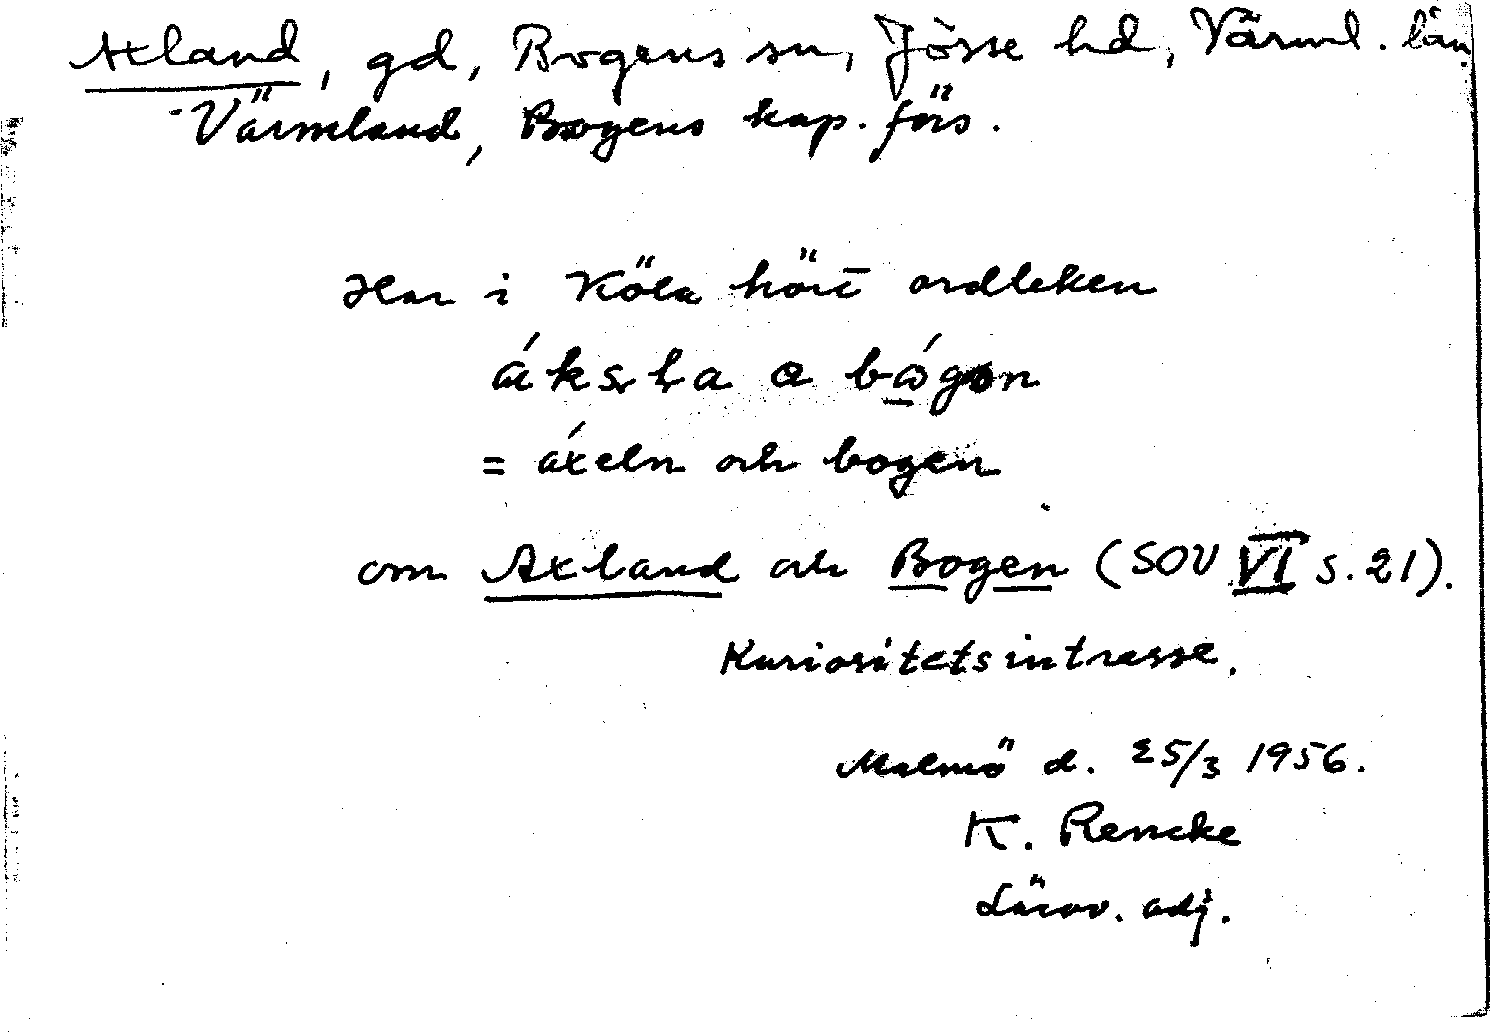 Axland, gd, Bogens sn, Jösse hd, Värml. län
-Värmland, Bogens kap. förs.
Har i Köla hört ordleken
áksḷa a bógon
= áxeln och bogen
om Axland och Bogen (SOV VI s. 21).
Kuriositetsintresse.
Malmö d. 25/3 1956.
K. Rencke
Lärov. adj.